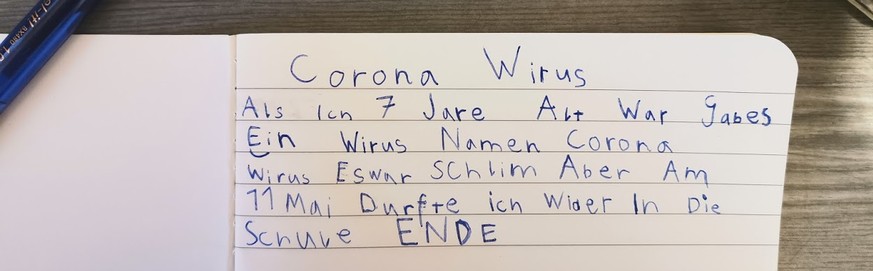 Corona Wirus
Als Ich 7 Jare Alt War gabes
Ein Wirus Namen Corona
Wirus Eswar SChlim Aber Am
11 Mai Durfte ich Wider In Die
Schule ENDE